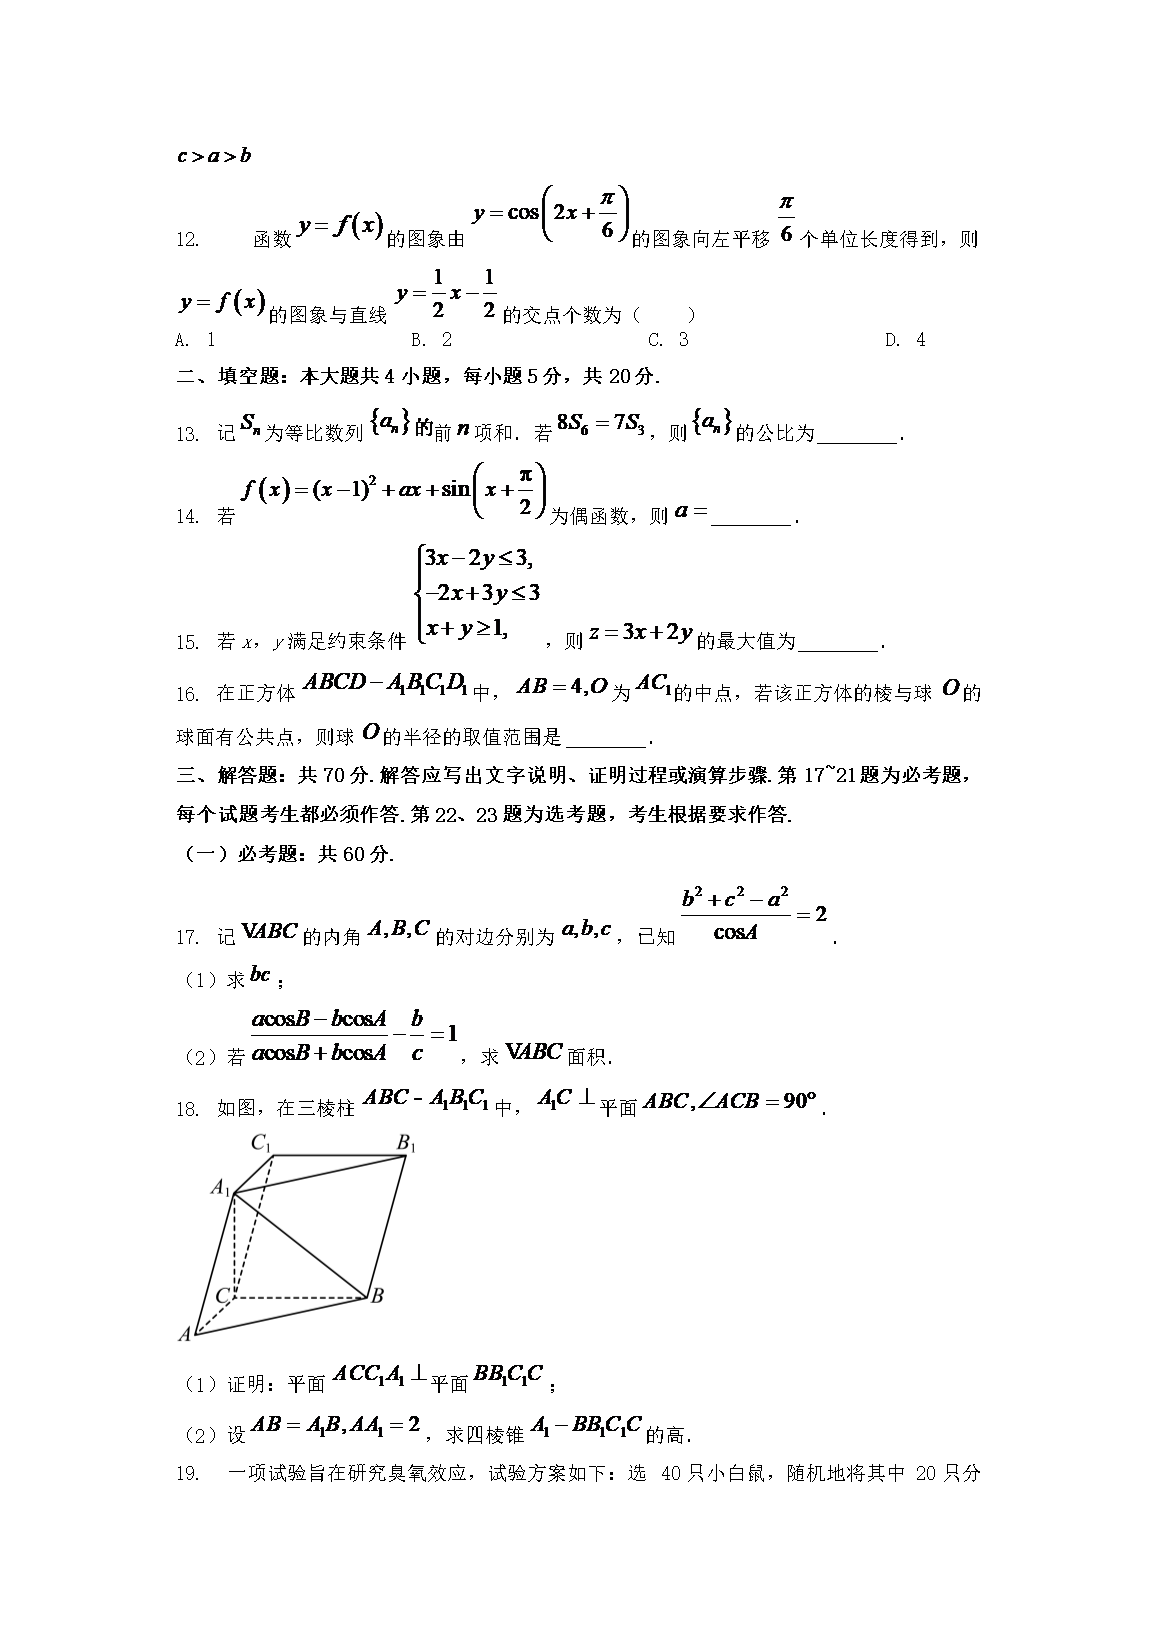 c>a>b
12. 函数 y=f(x) 的图象由 y=cos(2x+π/6) 的图象向左平移 π/6 个单位长度得到，则
y=f(x) 的图象与直线 y=1/2x−1/2 的交点个数为（ ）
A. 1 B. 2 C. 3 D. 4
二、填空题：本大题共 4 小题，每小题 5 分，共 20 分.
13. 记 Sₙ 为等比数列 {aₙ} 的前 n 项和．若 8S₆=7S₃，则 {aₙ} 的公比为________．
14. 若 f(x)=(x−1)²+ax+sin(x+π/2) 为偶函数，则 a=________．
15. 若 x，y 满足约束条件 {3x−2y≤3, −2x+3y≤3 x+y≥1, ，则 z=3x+2y 的最大值为________．
16. 在正方体 ABCD−A₁B₁C₁D₁ 中， AB=4,O 为 AC₁ 的中点，若该正方体的棱与球 O 的
球面有公共点，则球 O 的半径的取值范围是________．
三、解答题：共 70 分. 解答应写出文字说明、证明过程或演算步骤. 第 17~21 题为必考题，
每个试题考生都必须作答. 第 22、23 题为选考题，考生根据要求作答.
（一）必考题：共 60 分.
17. 记 VABC 的内角 A,B,C 的对边分别为 a,b,c，已知 (b²+c²−a²)/cosA=2．
（1）求 bc；
（2）若 (acosB−bcosA)/(acosB+bcosA)−b/c=1，求 VABC 面积．
18. 如图，在三棱柱 ABC-A₁B₁C₁ 中， A₁C⊥平面 ABC,∠ACB=90°．
C₁ B₁
A₁
C B
A
（1）证明：平面 ACC₁A₁⊥平面 BB₁C₁C；
（2）设 AB=A₁B,AA₁=2，求四棱锥 A₁−BB₁C₁C 的高．
19. 一项试验旨在研究臭氧效应，试验方案如下：选 40 只小白鼠，随机地将其中 20 只分